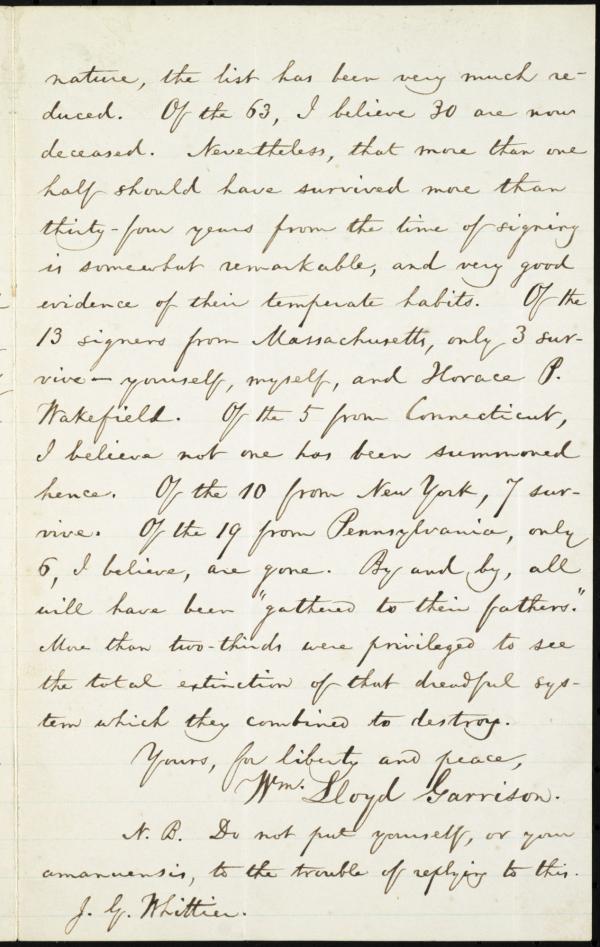 nature, the list has been very much re-
duced. Of the 63, I believe 30 are now
deceased. Nevertheless, that more than one
half should have survived more than
thirty-four years from the time of signing
is somewhat remarkable, and very good
evidence of their temperate habits. Of the
13 signers from Massachusetts, only 3 sur-
vive — yourself, myself, and Horace P.
Wakefield. Of the 5 from Connecticut,
I believe not one has been summoned
hence. Of the 10 from New York, 7 sur-
vive. Of the 19 from Pennsylvania, only
6, I believe, are gone. By and by, all
will have been "gathered to their fathers."
More than two-thirds were privileged to see
the total extinction of that dreadful sys-
tem which they combined to destroy.
Yours, for liberty and peace,
Wm. Lloyd Garrison.
N. B. Do not put yourself, or your
amanuensis, to the trouble of replying to this.
J. G. Whittier.